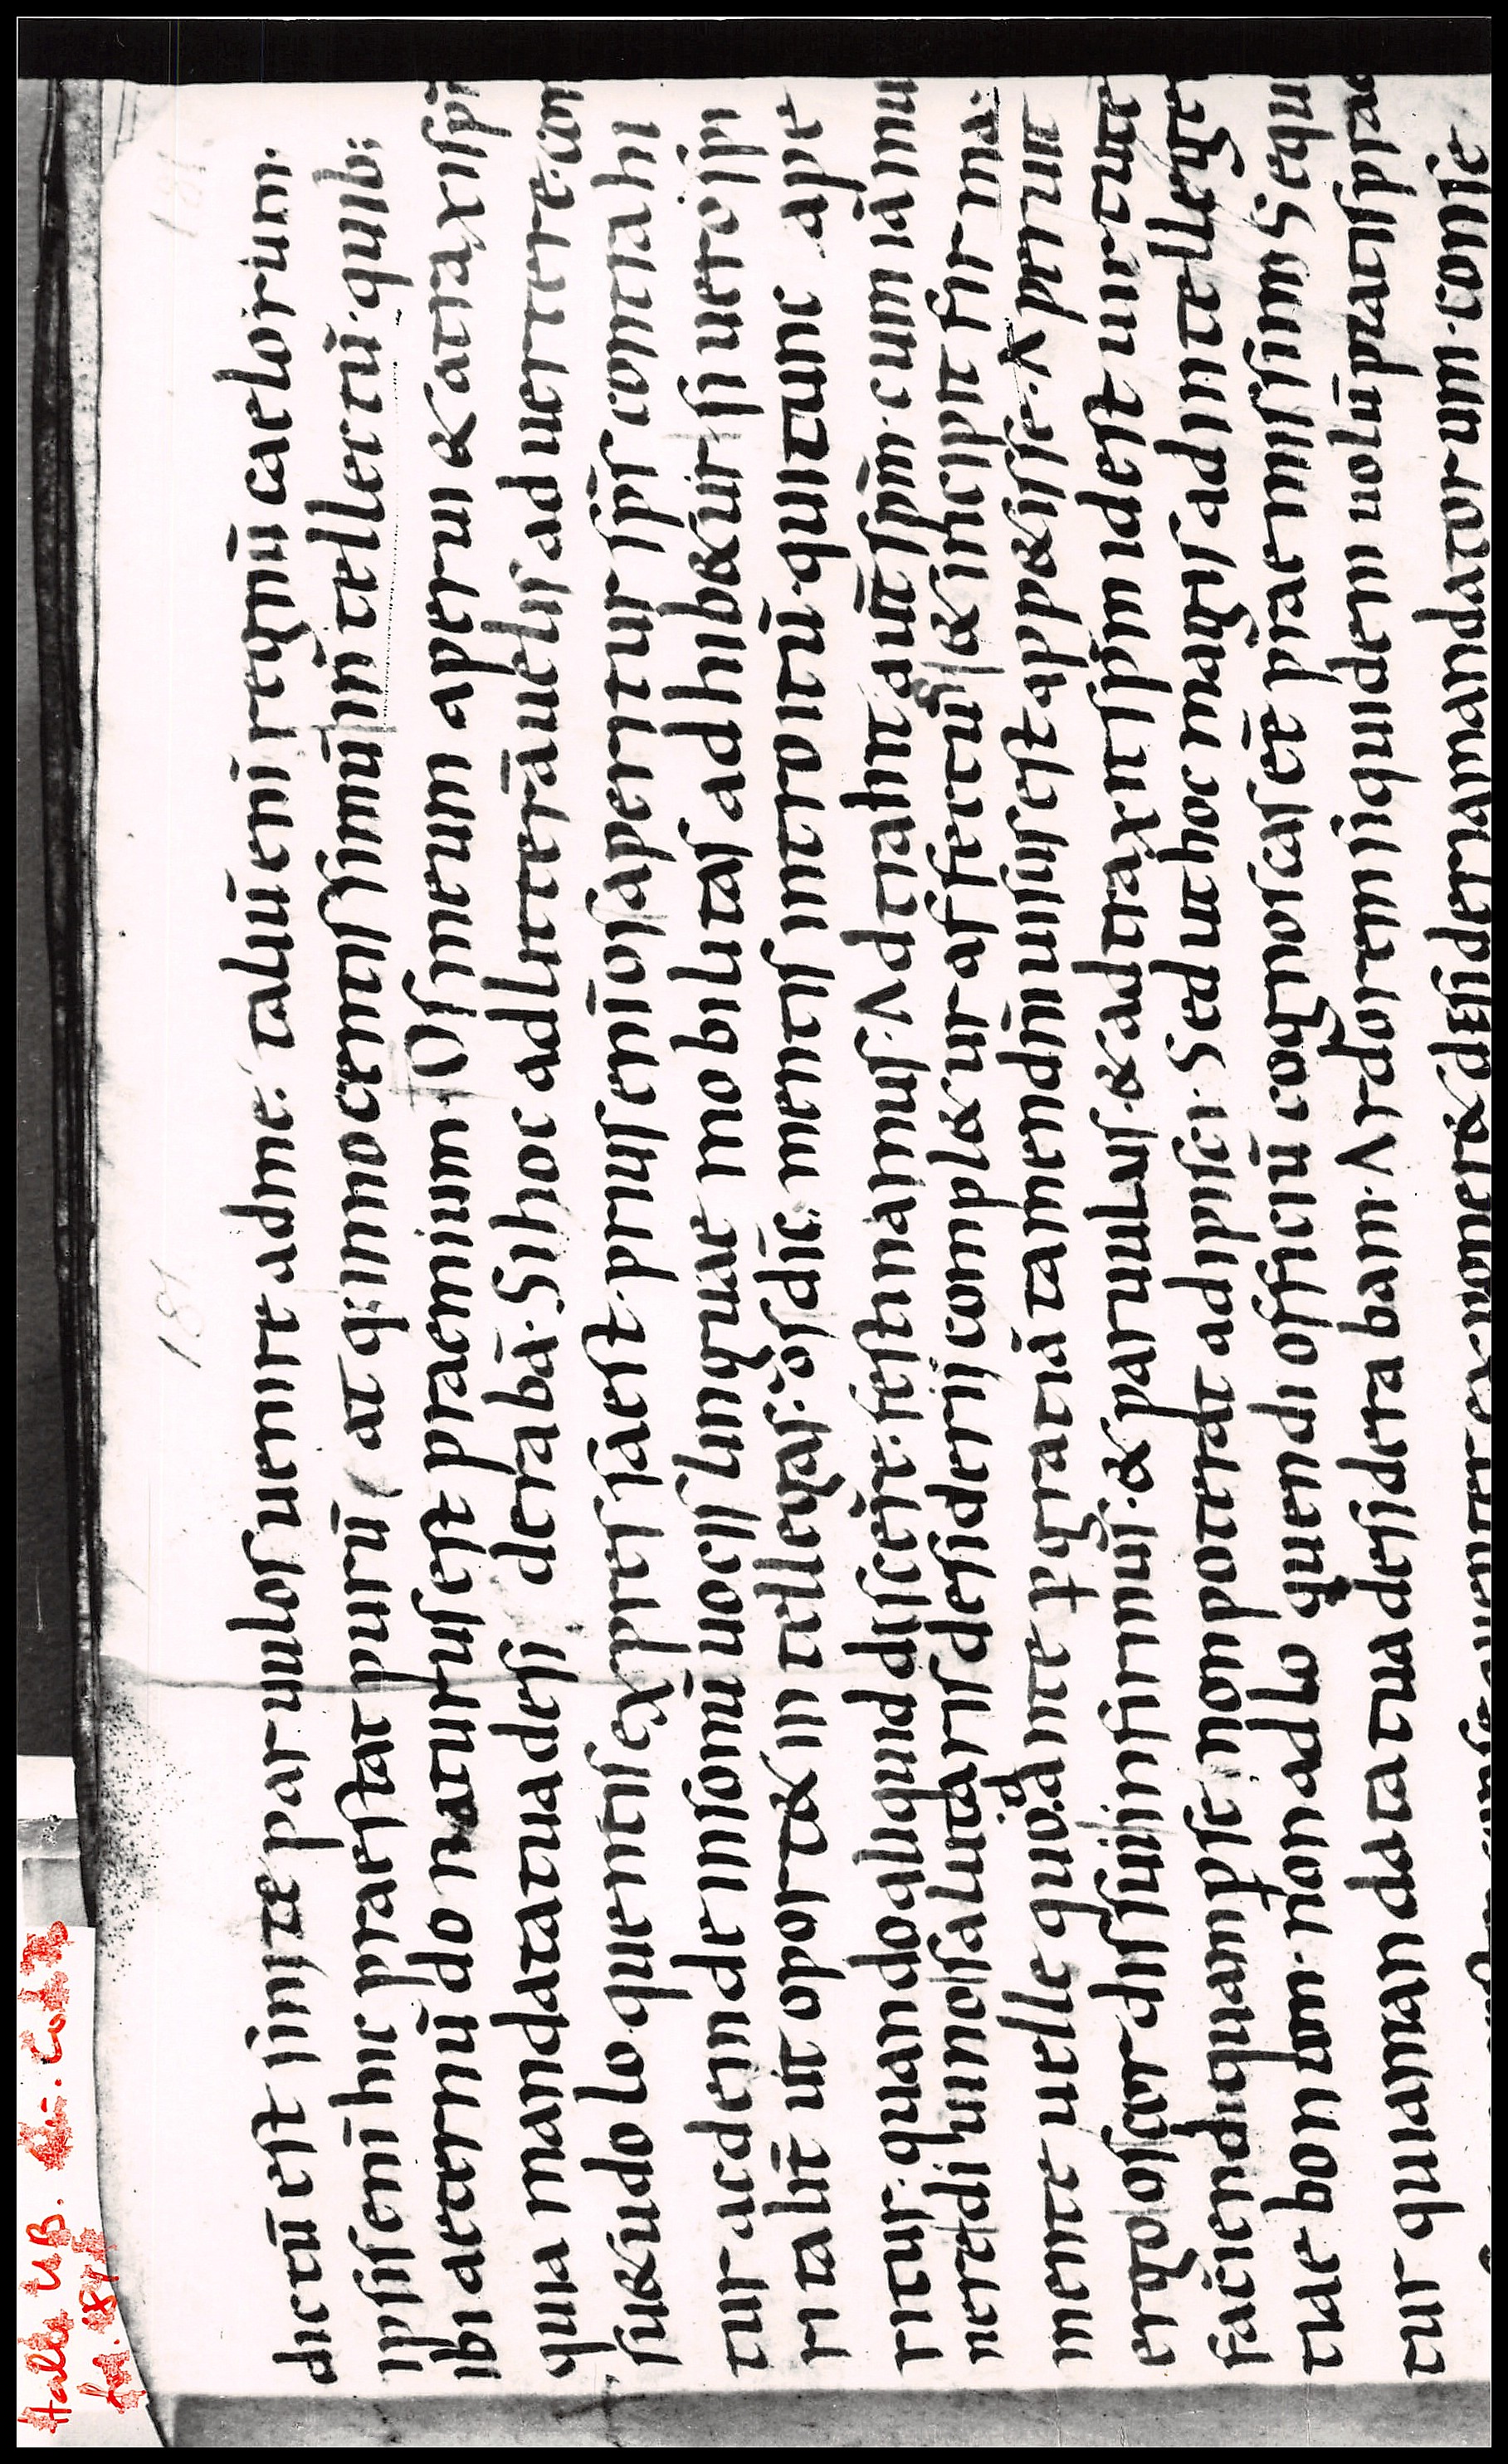 dictū est sinite paruulos uenire adme. taliū enī regnū caelorum.
ipsis enī hic praestat purū atq; innocentissimū hīn tellectū. quib;
ibi aeternū do naturus est praemium. Os meum aperui & atraxi sp̄m
quia mandata tua desi derabā. Si hoc ad litterā uelis ad uertere. con
su&udo loquentis expressa est. prius enī os aperitur sp̄s contrahi
tur ac deinde insonū uocis linguae mobilitas adhib&ur si uero spi
ritalit̄ ut oport& in tellegas. os dic̄ mentis introitū. qui tunc ape
ritur. quando aliquid discere festinamus. Adtrahit autē sp̄m. cum iā mu
nere diuino salutaris desiderij compl&ur affectus & incipit fir ma
mente uelle quod ante p gratiā tamen dn̄i uisus est app&isse. Aperuit
ergo os cor dis sui infirmus. & paruulus. & adtraxit sp̄m id est uirtutē
faciendi quam p se non poterat adipisci. Sed ut hoc magis ad intellege
tiae bonum. non ad lo quendi officiū cognoscas eē praemissim Sequi
tur quia mandata tua desidera bam. Ardorem siquidem uolup̄tatis prae
mandatorum. conse